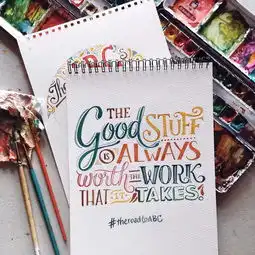 The
ABC's
THE
Good STUFF
IS ALWAYS
worth THE WORK
THAT IT TAKES!
#theroadtoABC